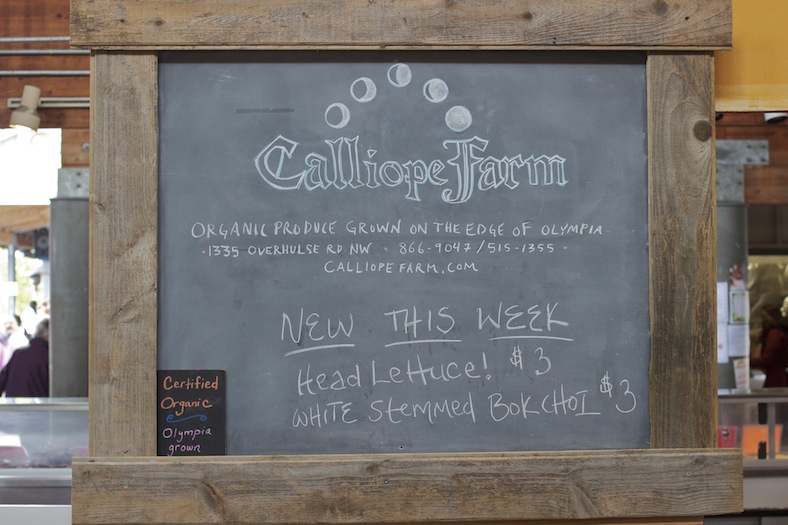 Calliope Farm
ORGANIC PRODUCE GROWN ON THE EDGE OF OLYMPIA
• 1335 OVERHULSE RD NW • 866-9047/515-1355 •
CALLIOPE FARM.COM
NEW THIS WEEK
Head Lettuce! $3
WHITE Stemmed BOK CHOI $3
Certified
Organic
Olympia
grown